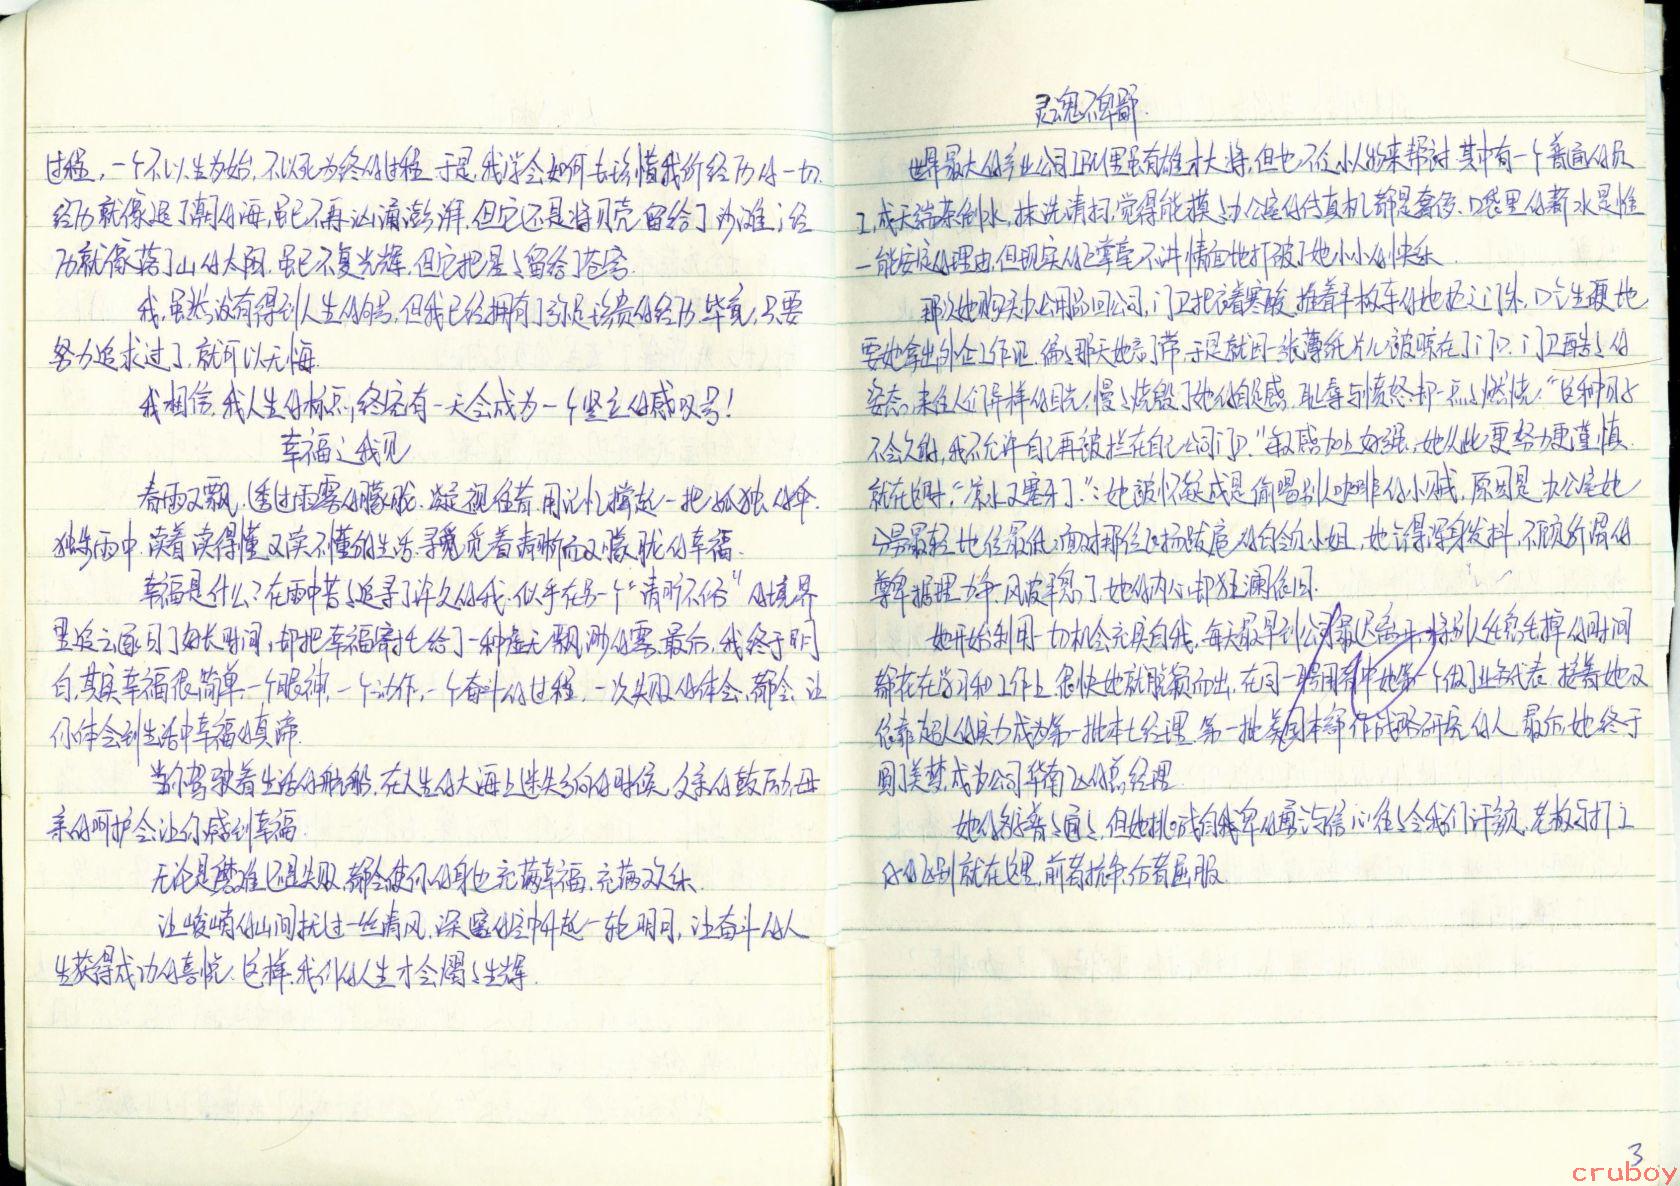 过程，一个不以生为始，不以死为终的过程。于是，我学会如何去珍惜我所经历的一切。
经历就像退了潮的海，虽已不再汹涌澎湃，但它还是将贝壳留给了沙滩；经
历就像落了山的太阳，虽已不复光辉，但它把星星留给了苍穹。
我，虽然没有得到人生的句号，但我已经拥有了弥足珍贵的经历，毕竟，只要
努力追求过了，就可以无悔。
我相信，我人生的标点，终究有一天会成为一个竖立的感叹号！
幸福之我见
春雨又飘，透过雨雾的朦胧，凝视往昔，用记忆撑起一把孤独的伞。
独步雨中，读着读得懂又读不懂的生活，寻觅觅着清晰而又朦胧的幸福。
幸福是什么？在雨中苦苦追寻了许久的我，似乎在另一个“清晰不俗”的境界
里追逐了好长时间，却把幸福寄托给了一种虚无飘渺的雾，最后，我终于明
白，其实幸福很简单，一个眼神，一个动作，一个奋斗的过程，一次失败的体会，都会让
你体会到生活中幸福的真谛。
当你驾驶着生活的航船，在人生的大海上迷失方向的时候，父亲的鼓历，母
亲的呵护会让你感到幸福。
无论是磨难还是失败，都会使你的身边充满幸福，充满欢乐。
让峻峭的山间抚过一丝清风，深邃的空中升起一轮明月，让奋斗的人
生获得成功的喜悦，这样，我们的人生才会熠熠生辉。
灵魂不卑鄙
世界最大的产业公司IBM里虽有雄才大将，但也不乏小人物来帮衬，其中有一个普通的员
工，成天端茶倒水，抹洗清扫，觉得能摸摸办公室的传真机都是奢侈，口袋里的薪水是惟
一能安慰的理由，但现实的巨掌毫不讲情面地打破了她小小的快乐。
那次她购买办公用品回公司，门卫把衣着寒酸，推着平板车的她拦之门外，口气生硬地
要她拿出外企工作证，偏偏那天她忘了带，于是就因一张薄纸片儿被晾在了门口，门卫酷酷的
姿态，来往人们异样的目光，慢慢烧毁了她的自足感，耻辱与愤怒却一点点燃烧：“这种日子
不会久的，我不允许自己再被拦在自己公司门口。”敏感加上好强，她从此更努力更谨慎。
就在这时，“凉水又塞牙了。”：她被怀疑成是偷喝别人咖啡的小贼，原因是办公室她
分量最轻，地位最低；面对那位飞扬跋扈的白领小姐，她气得浑身发抖，不顾所谓的
尊卑据理力争，风波平息了，她的内心却狂澜依旧。
她开始利用一切机会充实自我，每天最早到公司最迟离开，将别人任意丢掉的时间
都花在学习和工作上，很快她就脱颖而出，在同一聘用者中她第一个做了业务代表，接着她又
依靠超人的实力成为第一批本土经理，第一批美国本部作战略研究的人，最后，她终于
圆了美梦，成为公司华南区的总经理。
她的名字普普通通，但她挑战自我卑的勇气与信心往往令我们汗颜，老板与打工
仔的区别就在这里，前者抗争，后者屈服。
3
cruboy